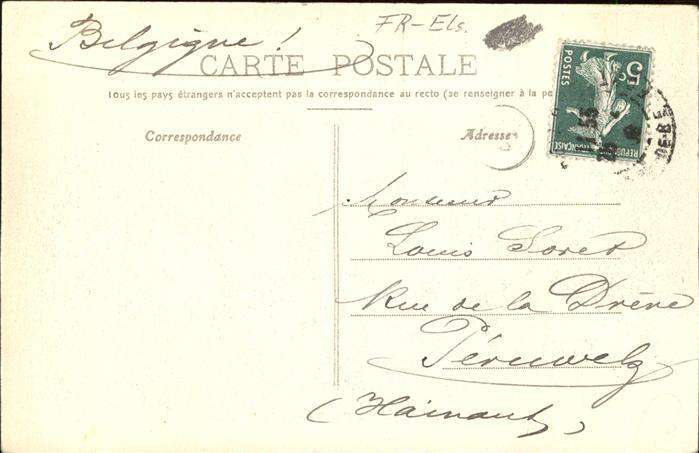 Belgique!
FR-Els.
CARTE POSTALE
Tous les pays étrangers n'acceptent pas la correspondance au recto (se renseigner à la po
Correspondance
Adresse
5c
POSTES
REPUBLIQUE FRANÇAISE
Monsieur
Louis Loret
Rue de la Drève
Péruwelz
(Hainaut)